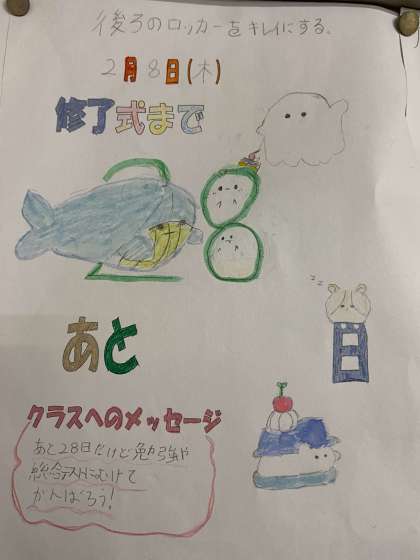 後ろのロッカーをキレイにする。
2月8日(木)
修了式まで
28
あと
日
クラスへのメッセージ
あと28日だけど勉強や
総合テストにむけて
がんばろう!